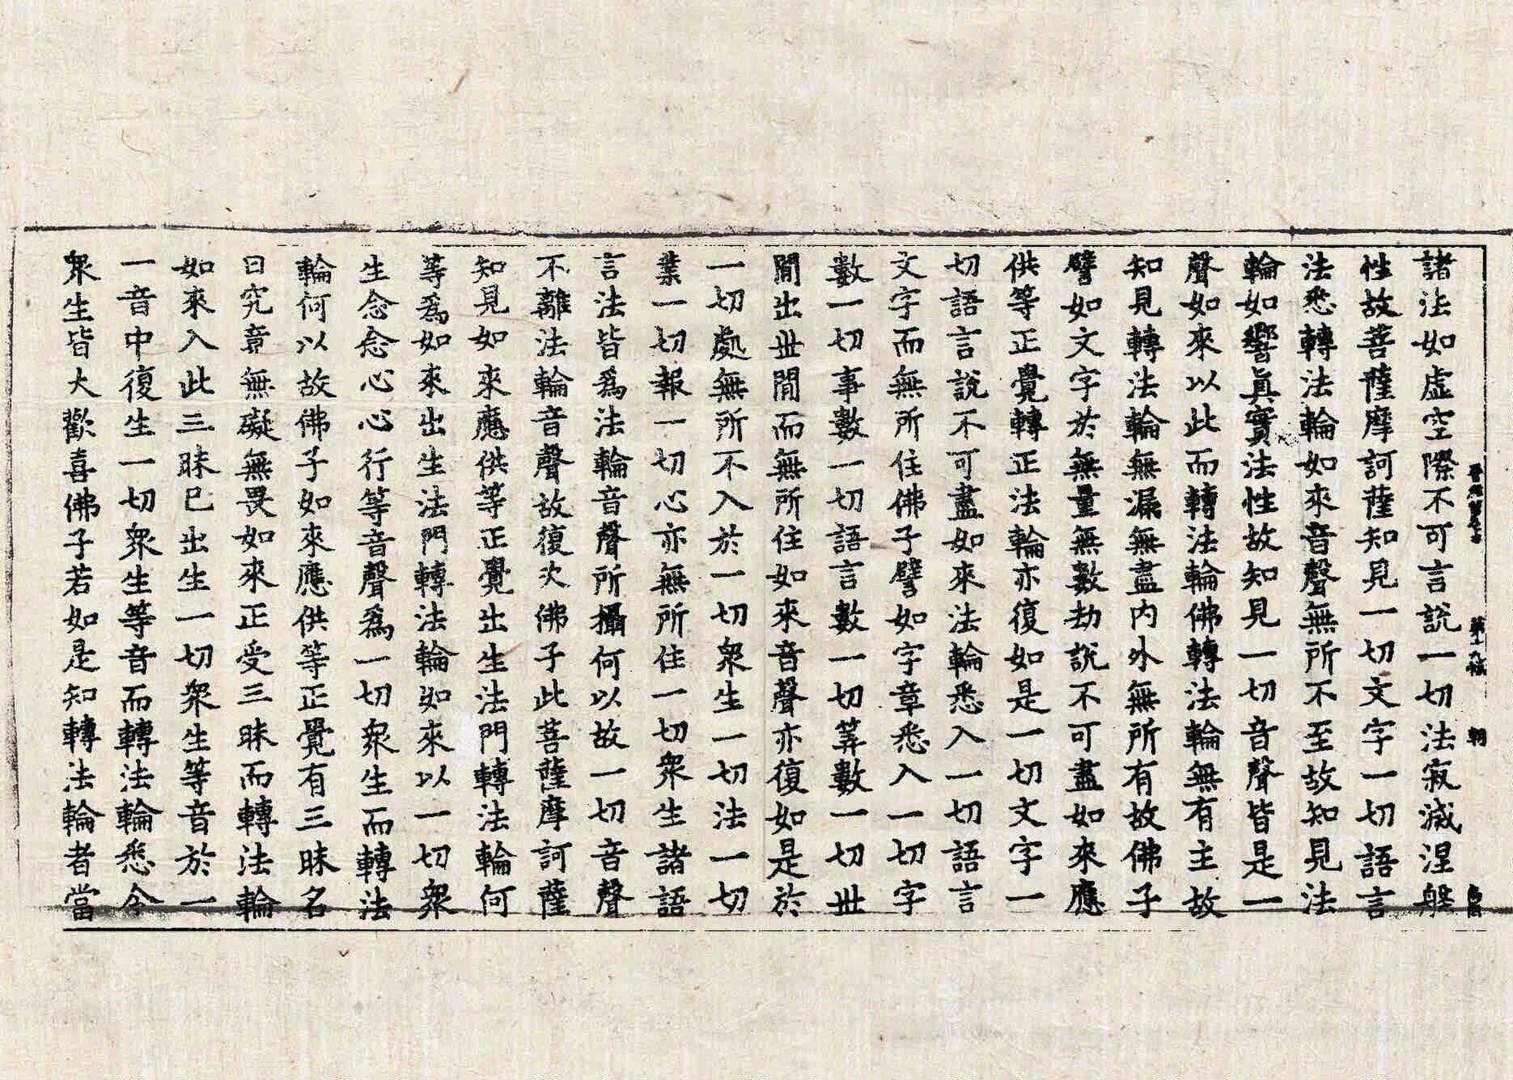 諸法如虛空際不可言說一切法寂滅涅槃
性故菩薩摩訶薩知見一切文字一切語言
法悉轉法輪如來音聲無所不至故知見法
輪如響真實法性故知見一切音聲皆是一
聲如來以此而轉法輪佛轉法輪無有主故
知見轉法輪無漏無盡內外無所有故佛子
譬如文字於無量無數劫說不可盡如來應
供等正覺轉正法輪亦復如是一切文字一
切語言說不可盡如來法輪悉入一切語言
文字而無所住佛子譬如字章悉入一切字
數一切事數一切語言數一切筭數一切世
間出世間而無所住如來音聲亦復如是於
一切處無所不入於一切眾生一切法一切
業一切報一切心亦無所住一切眾生諸語
言法皆為法輪音聲所攝何以故一切音聲
不離法輪音聲故復次佛子此菩薩摩訶薩
知見如來應供等正覺出生法門轉法輪何
等為如來出生法門轉法輪如來以一切眾
生念念心心行等音聲為一切眾生而轉法
輪何以故佛子如來應供等正覺有三昧名
曰究竟無礙無畏如來正受三昧而轉法輪
如來入此三昧已出生一切眾生等音於一
一音中復生一切眾生等音而轉法輪悉令
眾生皆大歡喜佛子若如是知轉法輪者當